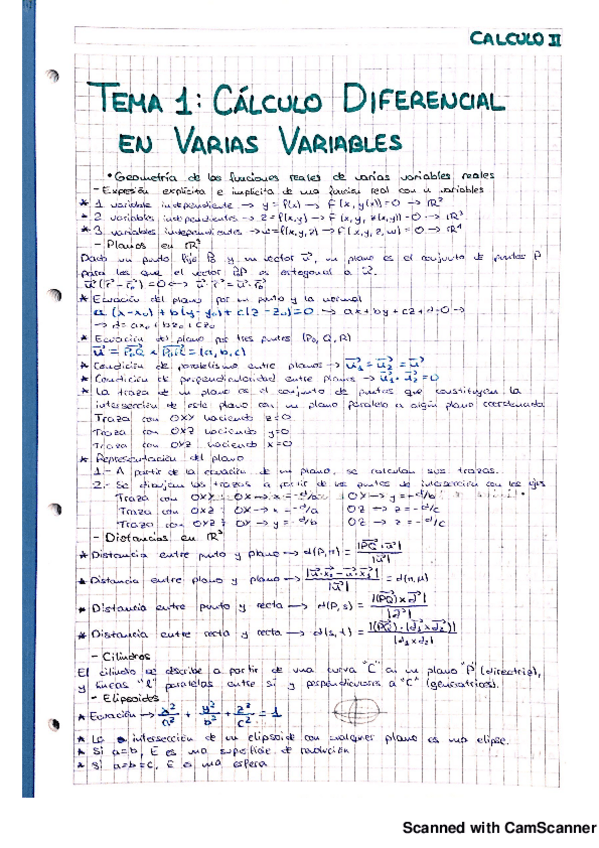 CALCULO II
TEMA 1: CÁLCULO DIFERENCIAL
EN VARIAS VARIABLES
• Geometría de las funciones reales de varias variables reales
- Expresión explícita e implícita de una función real con n variables
* 1 variable independiente → y = f(x) → F(x, y(x)) = 0 → ℝ²
* 2 variables independientes → z = f(x,y) → F(x, y, z(x,y)) = 0 → ℝ³
* 3 variables independientes → w = f(x,y,z) → F(x, y, z, w) = 0 → ℝ⁴
- Planos en ℝ³
Dado un punto fijo P₀ y un vector u⃗, un plano es el conjunto de puntos P
para los que el vector P₀P es ortogonal a u⃗.
u⃗(r⃗ - r⃗₀) = 0 ⟷ u⃗·r⃗ = u⃗·r⃗₀
* Ecuación del plano por un punto y la normal
a(x-x₀) + b(y-y₀) + c(z-z₀) = 0 → ax + by + cz + d = 0 →
→ d = ax₀ + bz₀ + cz₀
* Ecuación del plano por tres puntos (P₀, Q, R)
u⃗ = P₀Q × P₀R = (a, b, c)
* Condición de paralelismo entre planos → u⃗₁ = u⃗₂ = u⃗
* Condición de perpendicularidad entre planos → u⃗₁ · u⃗₂ = 0
* La traza de un plano es el conjunto de puntos que constituyen la
intersección de este plano con un plano paralelo a algún plano coordenada
Traza con OXY haciendo z=0
Traza con OXZ haciendo y=0
Traza con OYZ haciendo x=0
* Representación del plano
1.- A partir de la ecuación de un plano, se calculan sus trazas.
2.- Se dibujan las trazas a partir de los puntos de intersección con los ejes
Traza con OXY : OX → x = -d/a OY → y = -d/b
Traza con OXZ : OX → x = -d/a OZ → z = -d/c
Traza con OYZ : OY → y = -d/b OZ → z = -d/c
- Distancias en ℝ³
* Distancia entre punto y plano → d(P, π) = |PQ · u⃗| / |u⃗|
* Distancia entre plano y plano → = d(π, μ)
* Distancia entre punto y recta → d(P, s) = |(PQ) × d⃗| / |d⃗|
* Distancia entre recta y recta → d(s, t) = |(PQ) · (d⃗₁ × d⃗₂)| / |d₁ × d₂|
- Cilindros
El cilindro se describe a partir de una curva "C" en un plano "P" (directriz),
y líneas "l" paralelas entre sí y perpendiculares a "C" (generatrices).
- Elipsoides
* Ecuación → x²/a² + y²/b² + z²/c² = 1
* La intersección de un elipsoide con cualquier plano es una elipse.
* Si a=b, E es una superficie de revolución
* Si a=b=c, E es una esfera
Scanned with CamScanner